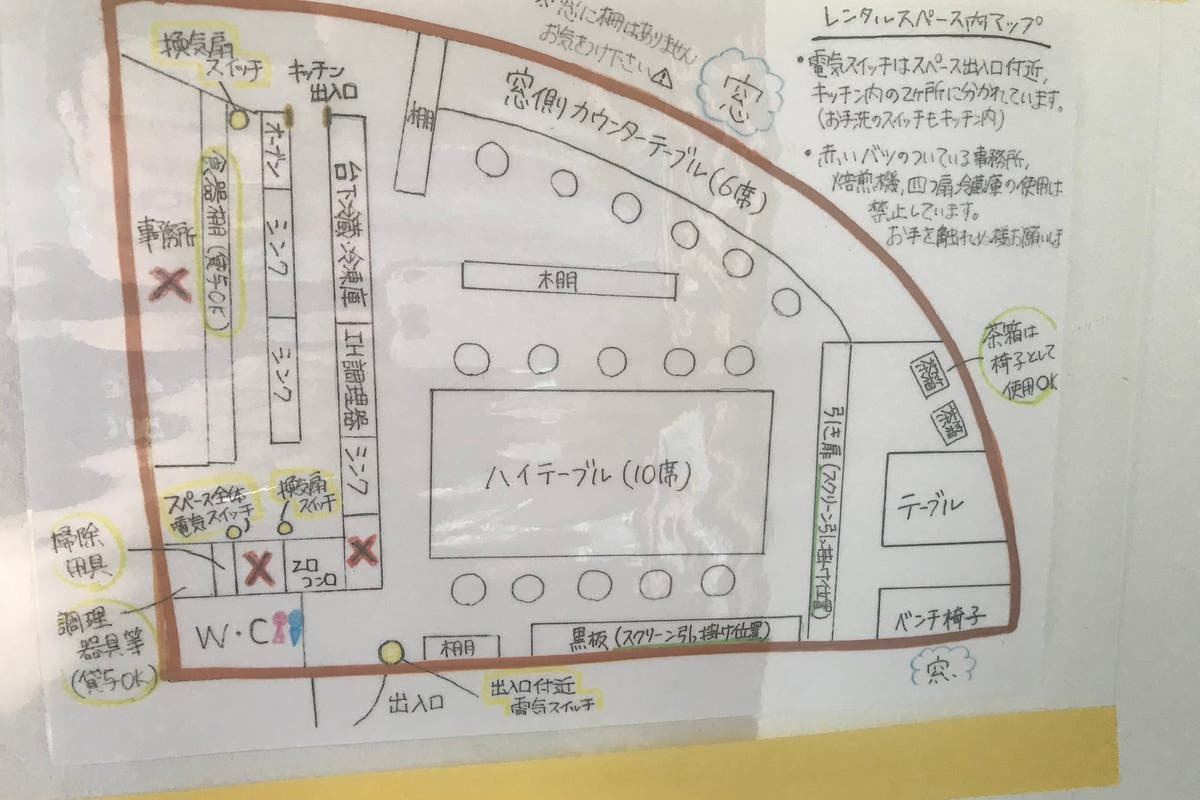 レンタルスペース内マップ
・電気スイッチはスペース出入口付近,
キッチン内の2ヶ所に分かれています。
(お手洗のスイッチもキッチン内)
・赤いバツのついている事務所,
焙煎機,四つ扇冷蔵庫の使用は
禁止しています。
お手を触れぬ様お願いしま
窓に柵はありません
お気をつけ下さい⚠
窓
換気扇
スイッチ
キッチン
出入口
棚
窓側カウンターテーブル(6席)
オーブン
シンク
シンク
台下冷蔵・冷凍庫
IH調理器
シンク
事務所
食器棚(貸与OK)
棚
茶箱は
椅子として
使用OK
茶箱
茶箱
ハイテーブル(10席)
引き扉(スクリーン引っ掛け位置)
テーブル
ベンチ椅子
スペース全体
電気スイッチ
換気扇
スイッチ
掃除
用具
2口
コンロ
調理
器具等
(貸与OK)
W・C
棚
黒板(スクリーン引っ掛け位置)
窓
出入口
出入口付近
電気スイッチ